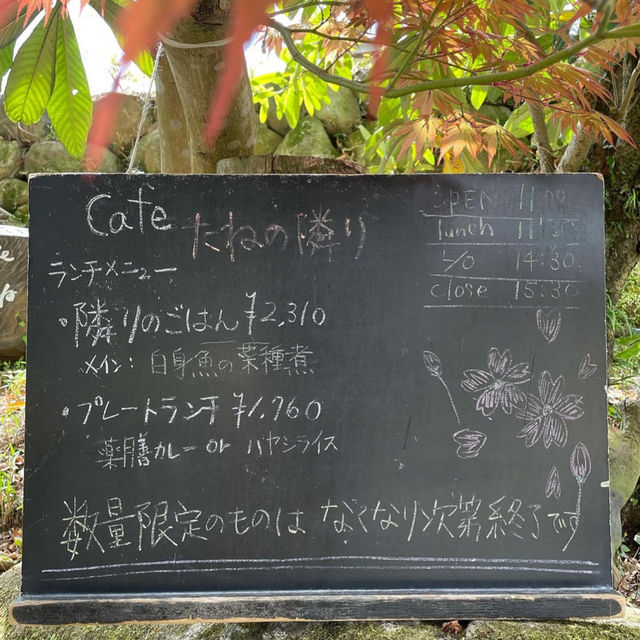 Cafe たねの隣り
OPEN 11:00
lunch 11:30
L/O 14:30
close 15:30
ランチメニュー
・隣りのごはん ¥2,310
メイン: 白身魚の菜種煮
・プレートランチ ¥1,760
薬膳カレー or ハヤシライス
数量限定のものは なくなり次第終了です